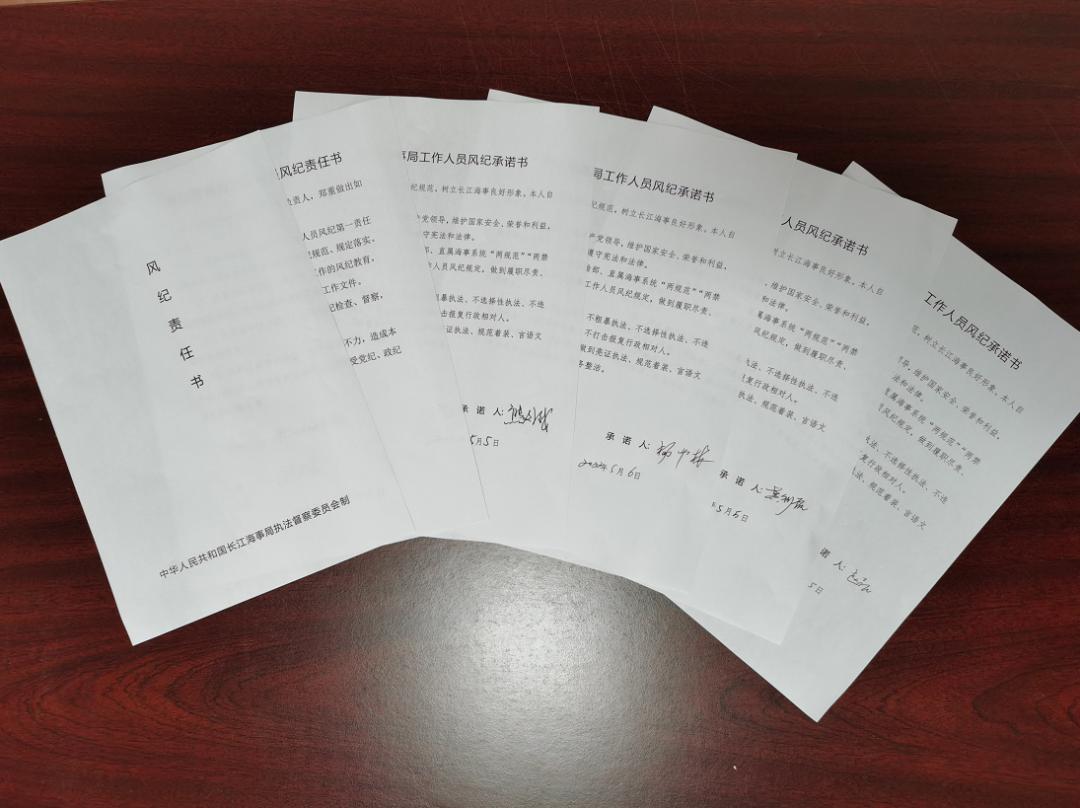 风纪责任书
中华人民共和国长江海事局执法督察委员会制
风纪责任书
责人，郑重做出如
人员风纪第一责任
规范、规定落实。
工作的风纪教育，
工作文件。
纪检查、督察，
不力，造成本
受党纪、政纪
事局工作人员风纪承诺书
纪规范，树立长江海事良好形象，本人自
产党领导，维护国家安全、荣誉和利益，
守宪法和法律。
部、直属海事系统“两规范”“两禁
作人员风纪规定，做到履职尽责、
粗暴执法、不选择性执法、不选
击报复行政相对人。
证执法、规范着装、言语文
承 诺 人：
5月5日
局工作人员风纪承诺书
纪规范，树立长江海事良好形象，本人自
产党领导，维护国家安全、荣誉和利益，
遵守宪法和法律。
部、直属海事系统“两规范”“两禁
工作人员风纪规定，做到履职尽责、
不粗暴执法、不选择性执法、不选
不打击报复行政相对人。
做到亮证执法、规范着装、言语文
整洁。
承 诺 人：
5月6日
人员风纪承诺书
树立长江海事良好形象，本人自
，维护国家安全、荣誉和利益，
和法律。
属海事系统“两规范”“两禁
风纪规定，做到履职尽责、
执法、不选择性执法、不选
复行政相对人。
执法、规范着装、言语文
承 诺 人：
5月6日
工作人员风纪承诺书
范，树立长江海事良好形象，本人自
导，维护国家安全、荣誉和利益，
法和法律。
直属海事系统“两规范”“两禁
风纪规定，做到履职尽责、
执法、不选择性执法、不选
复行政相对人。
执法、规范着装、言语文
诺 人：
5日